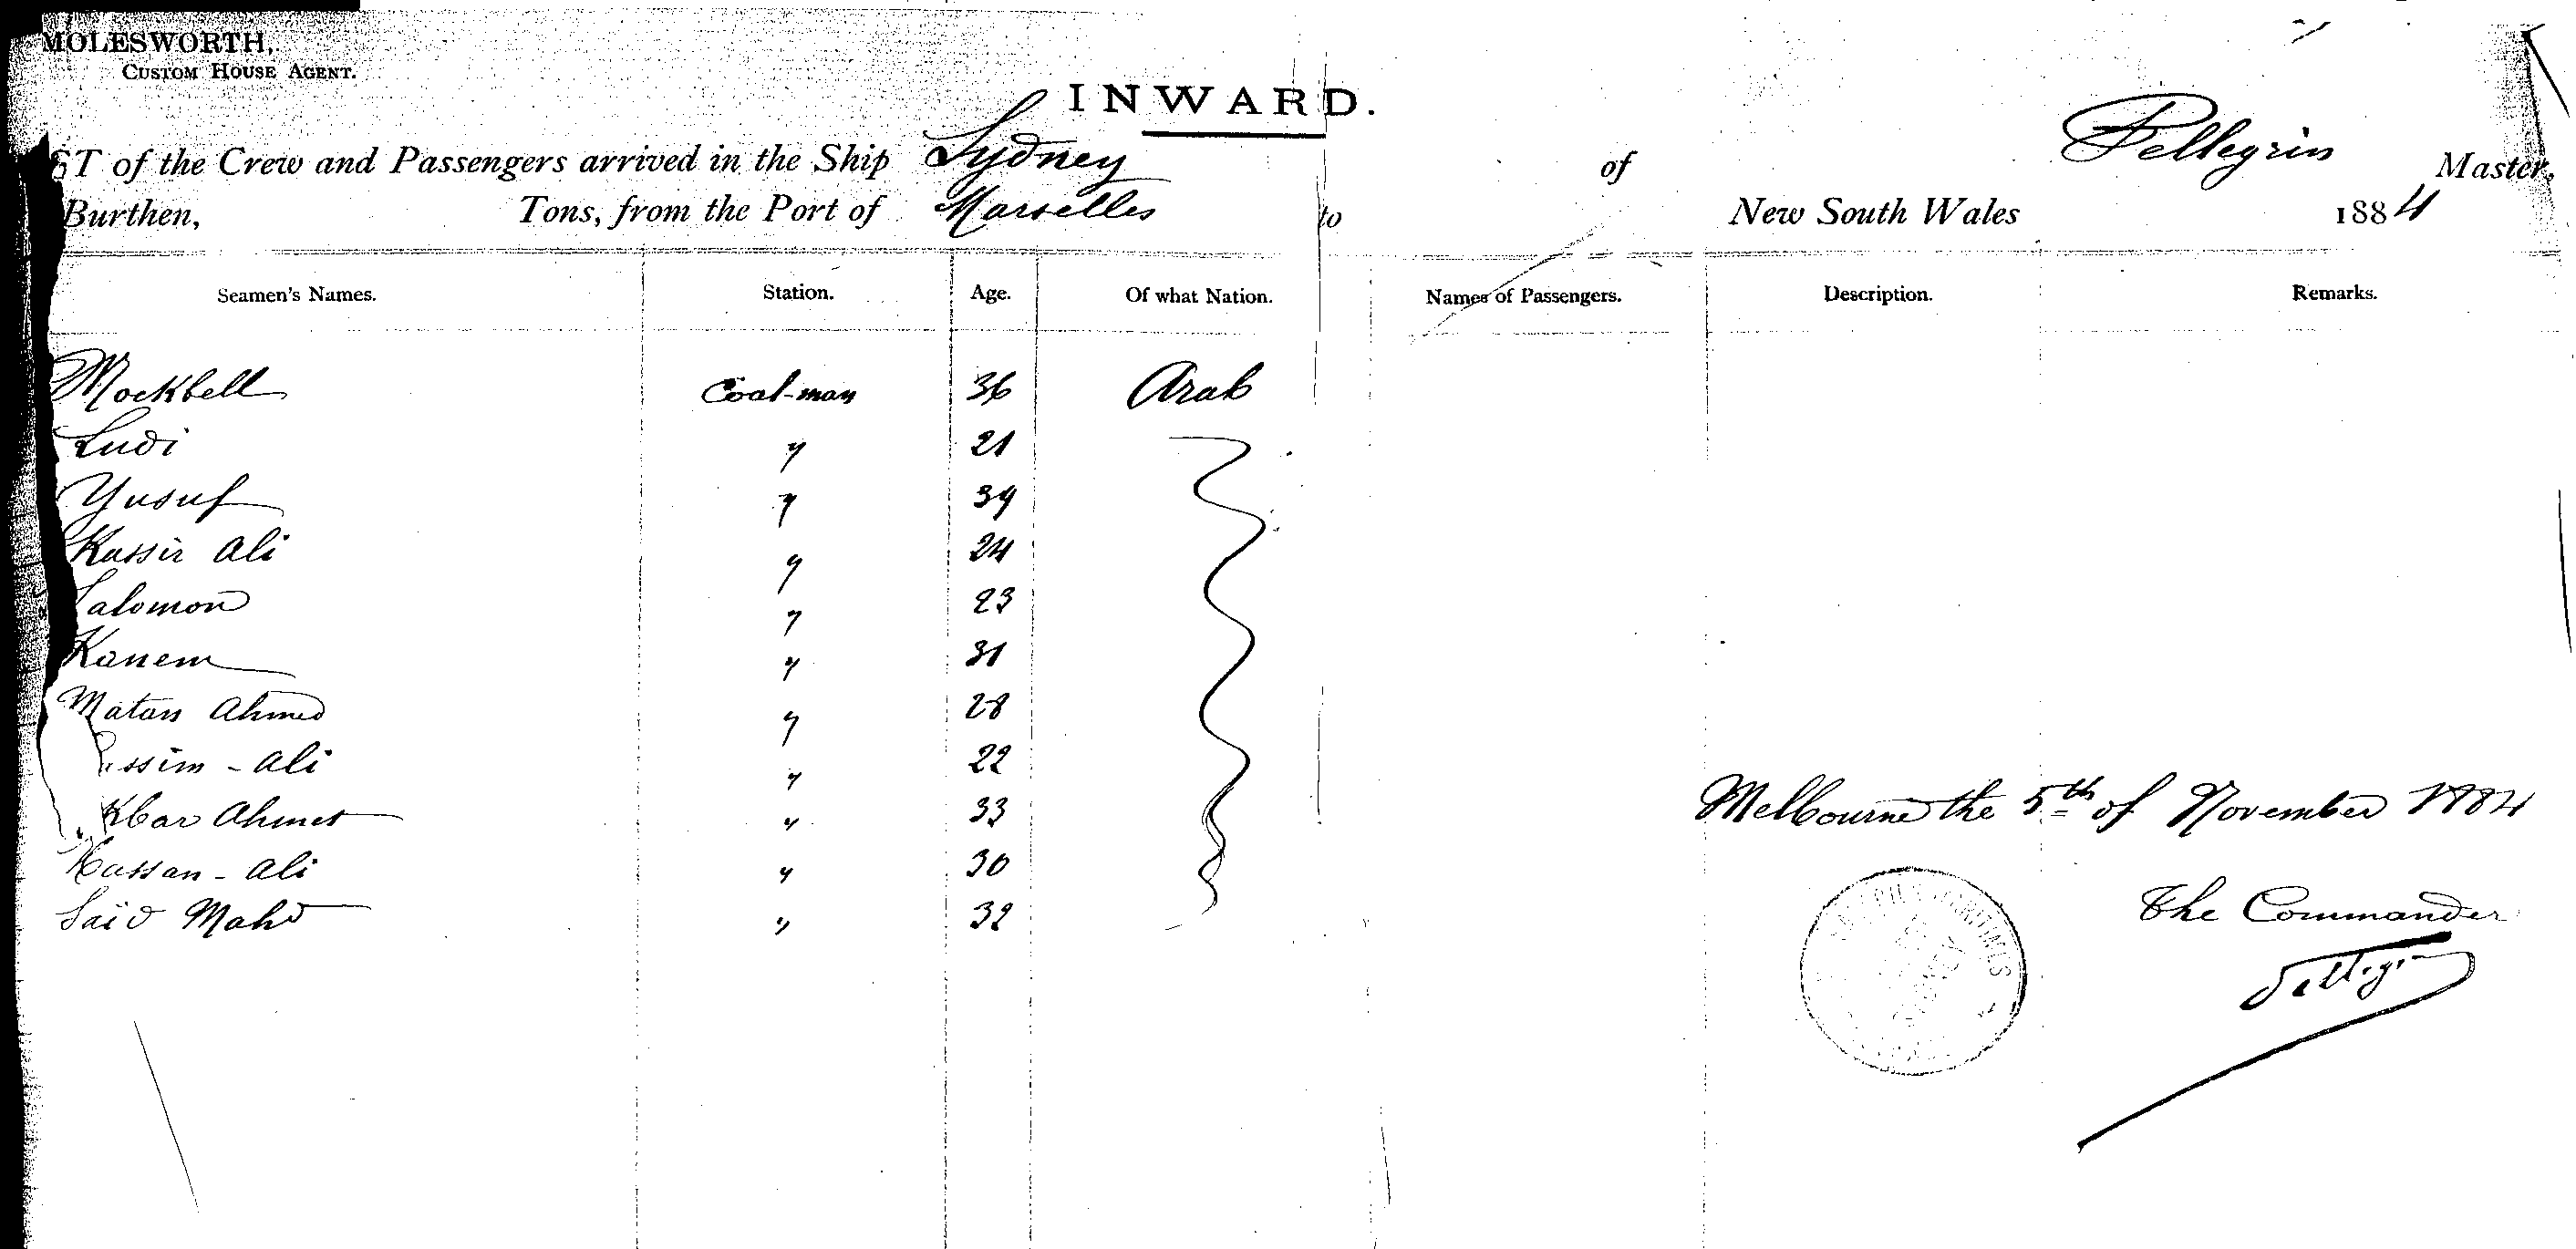 MOLESWORTH,
CUSTOM HOUSE AGENT.
INWARD.
ST of the Crew and Passengers arrived in the Ship Sydney of Pellegrin Master,
Burthen, Tons, from the Port of Marseilles to New South Wales 1884
Seamen's Names. Station. Age. Of what Nation. Names of Passengers. Description. Remarks.
Mockbell Coal-man 36 Arab
Ludi " 21
Yusuf " 39
Kassir Ali " 24
Salomon " 23
Kanem " 31
Matan Ahmed " 28
Ali " 22
Ahmet " 33
Melbourne the 5th of November 1884
Hassan - Ali " 30
Saïd Mahd " 32
The Commander